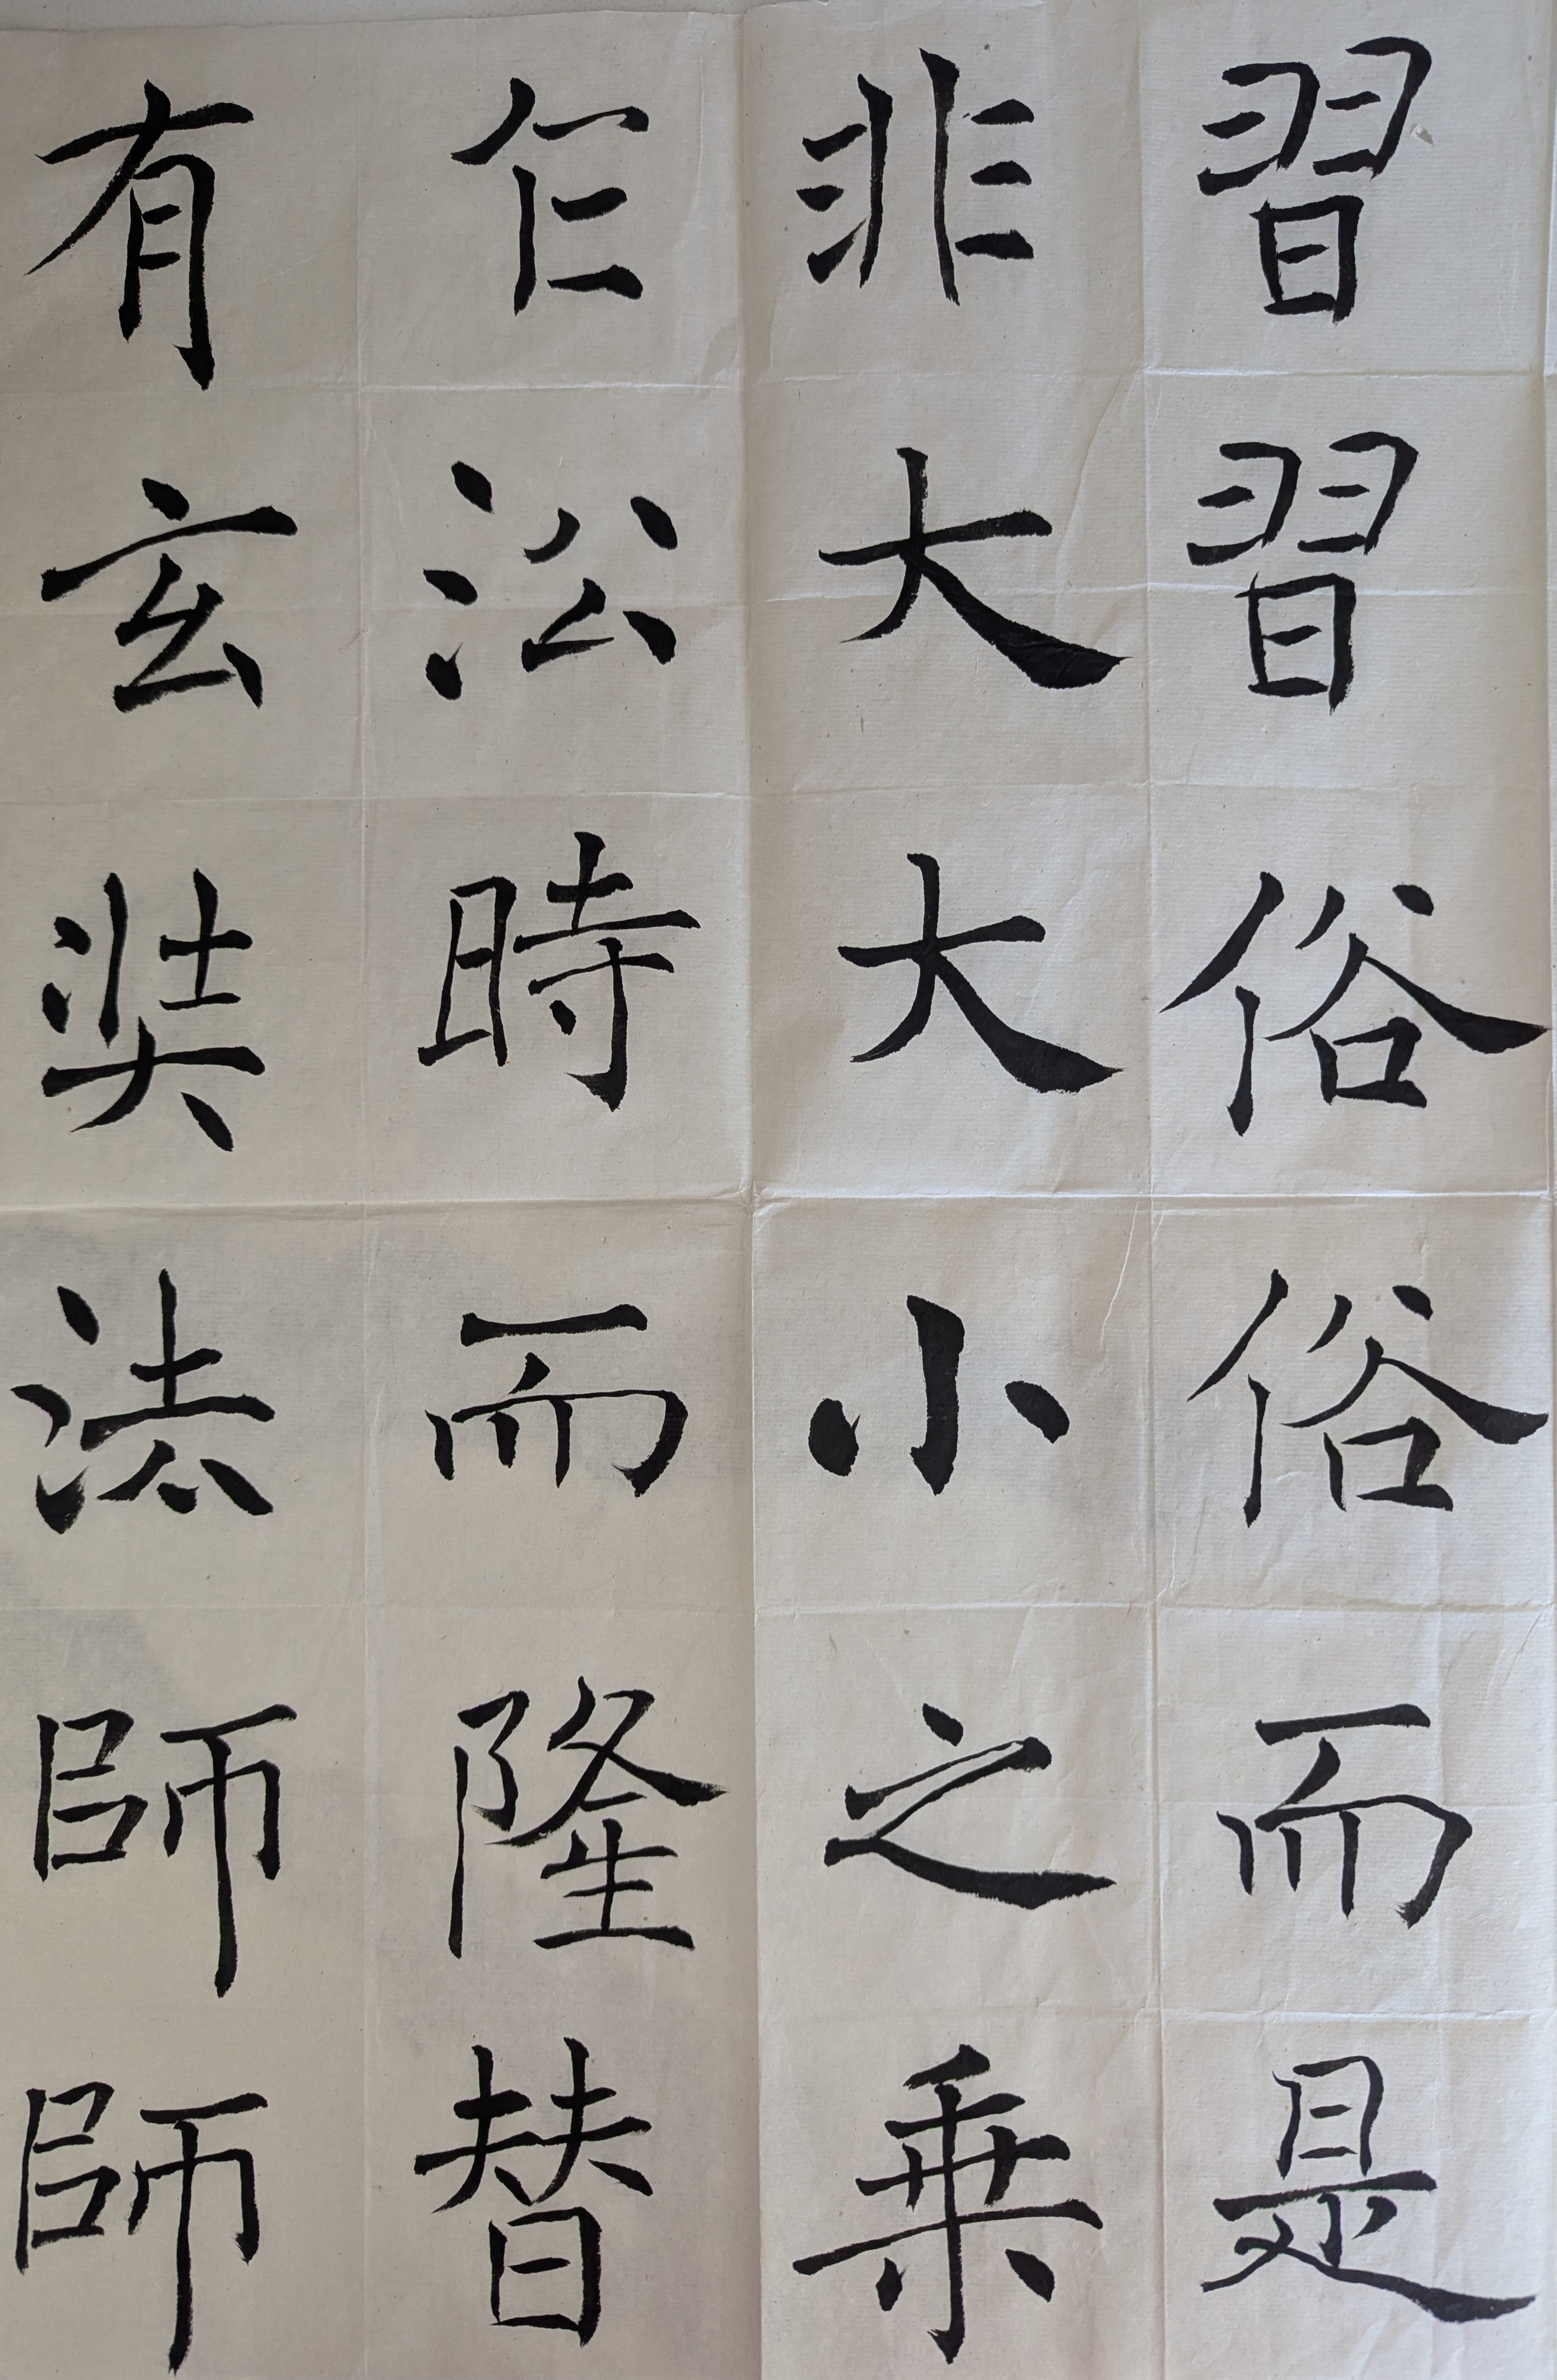 習習俗俗而是
非大大小之乗
乍沿時而隆替
有玄奘法師師